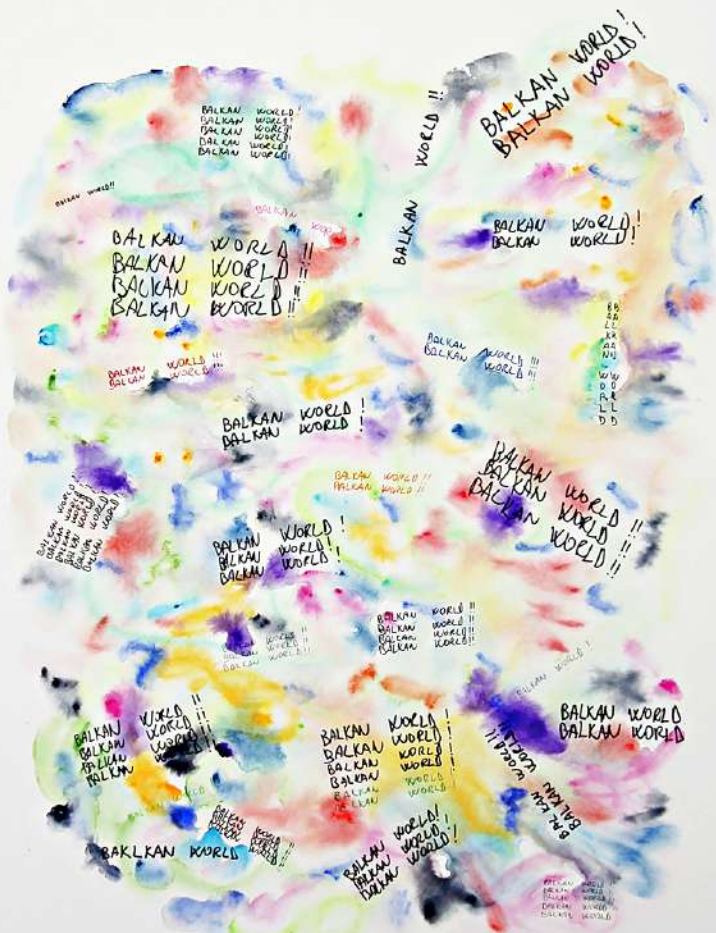 BALKAN WORLD!
BALKAN WORLD!
BALKAN WORLD!
BALKAN WORLD!
BALKAN WORLD!
BALKAN WORLD!
BALKAN WORLD!
BALKAN WORLD!!
BALKAN WORLD!!
BALKAN
BALKAN WORLD!
BALKAN WORLD!
BALKAN WORLD!!
BALKAN WORLD!!
BALKAN WORLD!!
BALKAN WORLD!!
BALKAN WORLD!!!
BALKAN WORLD!!!
BALKAN WORLD!!!
BALKAN WORLD!!!
BALKAN WORLD!
BALKAN WORLD!
BALKAN WORLD!!
BALKAN WORLD!!
BALKAN WORLD!!
BALKAN WORLD!!
BALKAN WORLD!!
BALKAN WORLD!
BALKAN WORLD!
BALKAN WORLD
BALKAN WORLD
BALKAN WORLD
BALKAN WORLD
BALKAN WORLD!
BALKAN WORLD!
BALKAN WORLD!
BALKAN WORLD!!
BALKAN WORLD!!
BALKAN WORLD!!
BALKAN WORLD!!
BALKAN WORLD!!
BALKAN WORLD!!
BALKAN WORLD!
BALKAN WORLD!!
BALKAN WORLD!!
BALKAN WORLD!!
BALKAN WORLD!!
BALKAN WORLD!!
BALKAN WORLD!!
BALKAN WORLD!!
BALKAN WORLD!!
BALKAN WORLD!!
BALKAN WORLD!!
BALKAN WORLD!!
BALKAN WORLD!!
BALKAN WORLD
BALKAN WORLD
BALKAN WORLD
BALKAN WORLD
BALKAN WORLD
BALKAN WORLD
BAKLKAN WORLD
BALKAN WORLD!
BALKAN WORLD!
BALKAN WORLD!
BALKAN WORLD
BALKAN WORLD
BALKAN WORLD
BALKAN WORLD
BALKAN WORLD